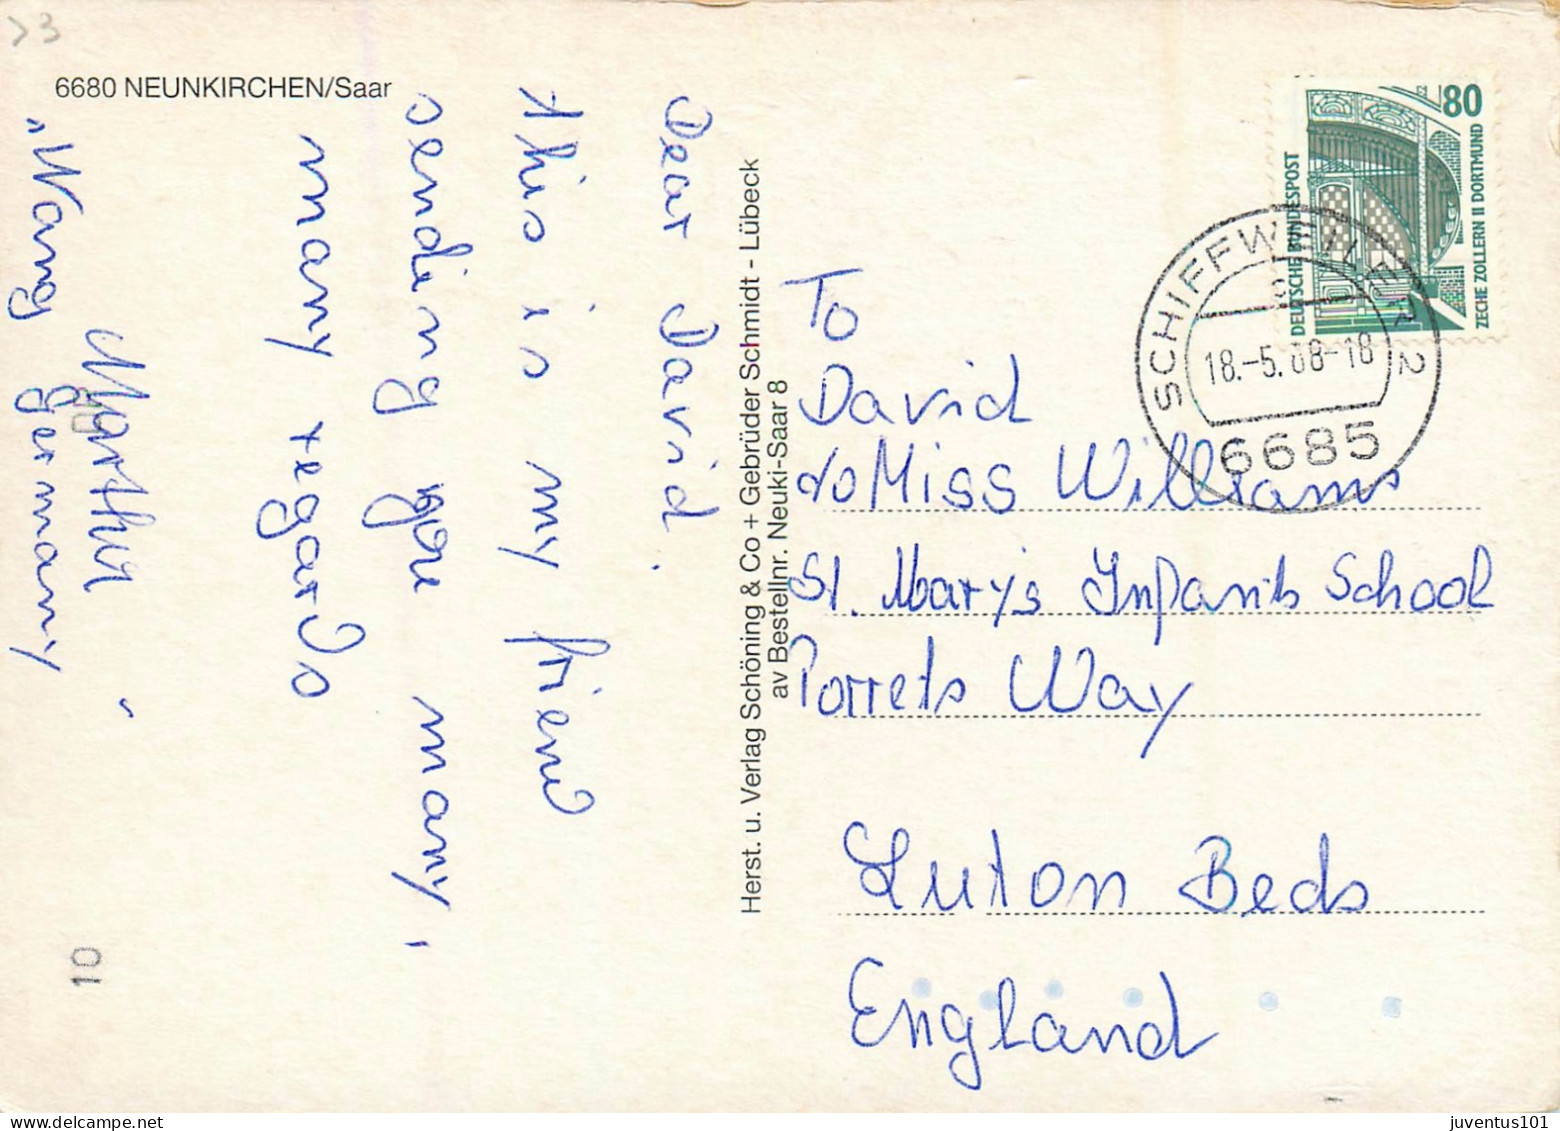 6680 NEUNKIRCHEN/Saar
Dear David.
this is my friend
sending you many,
many regards
Marther
"Wang germany"
10
Herst. u. Verlag Schöning & Co + Gebrüder Schmidt - Lübeck
av Bestellnr. Neuki-Saar 8
80
DEUTSCHE BUNDESPOST
ZECHE ZOLLERN II DORTMUND
SCHIFFWEILER 2
c
18.-5.88-18
6685
To
David
c/o Miss Williams
St. Mary's Infants School
Porrets Way
Luton Beds
England
juventus101